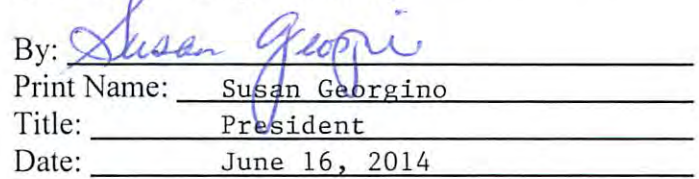 By: Susan Georgino
Print Name: Susan Georgino
Title: President
Date: June 16, 2014